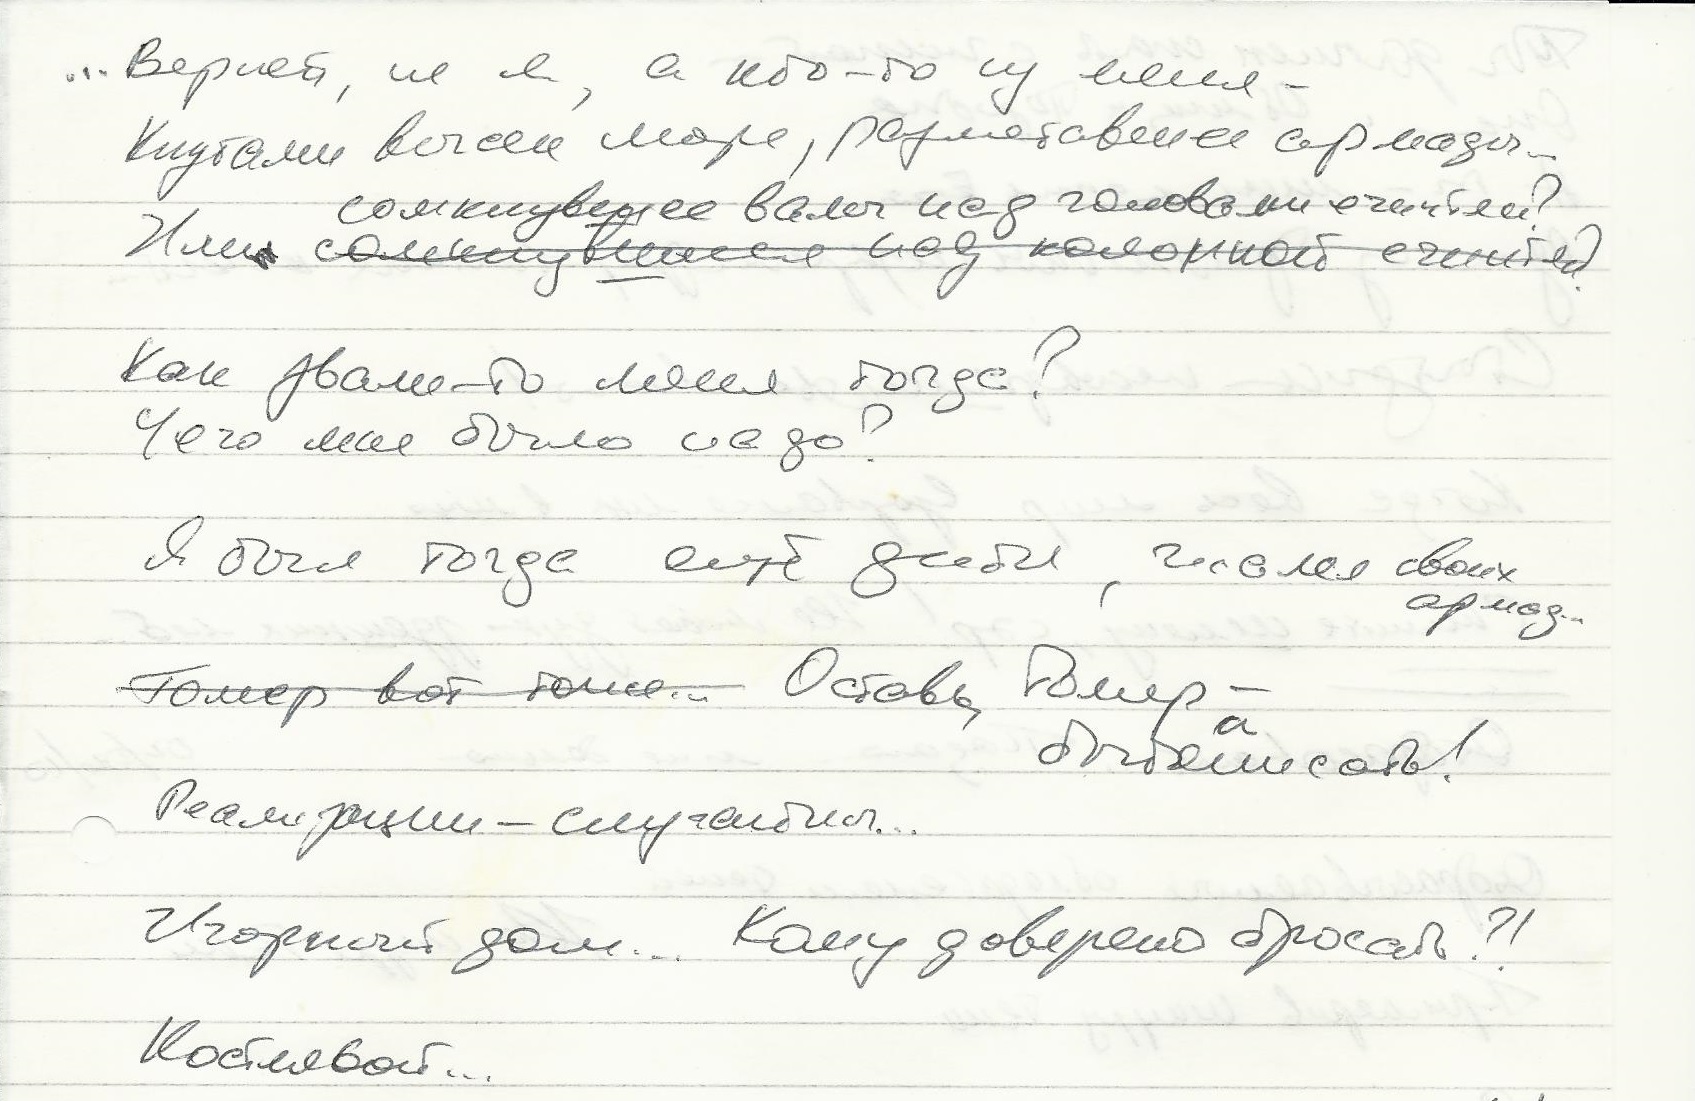 ... Вернет, не я, а кто-то из меня -
Кнутами высек море, разметавшее армады...
сомкнувшее валы над головами египтян?
Или сомкнувшиеся над колонной египтян?
Как звали-то меня тогда?
Чего мне было надо?
Я был тогда ещё дитём, числа своих
армад...
Гомер вот тоже... Оставь, Гомер -
а
бытописать!
Реализации - случайны...
Игорный дом... Кому доверено бросать?!
Костлявой...